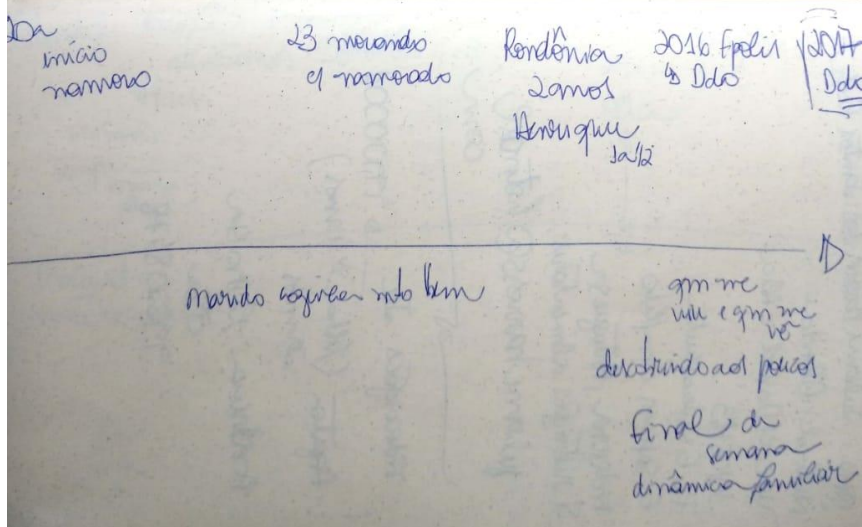 20a
início
namoro
23 morando
c/ namorado
Rondônia
2 anos
Henrique
1a1/2
2016 Fpolis
↳ Ddo
2017
Ddo
marido cozinha mto bem
qm me
viu e qm me
vê
descobrindo aos poucos
final de
semana
dinâmica familiar